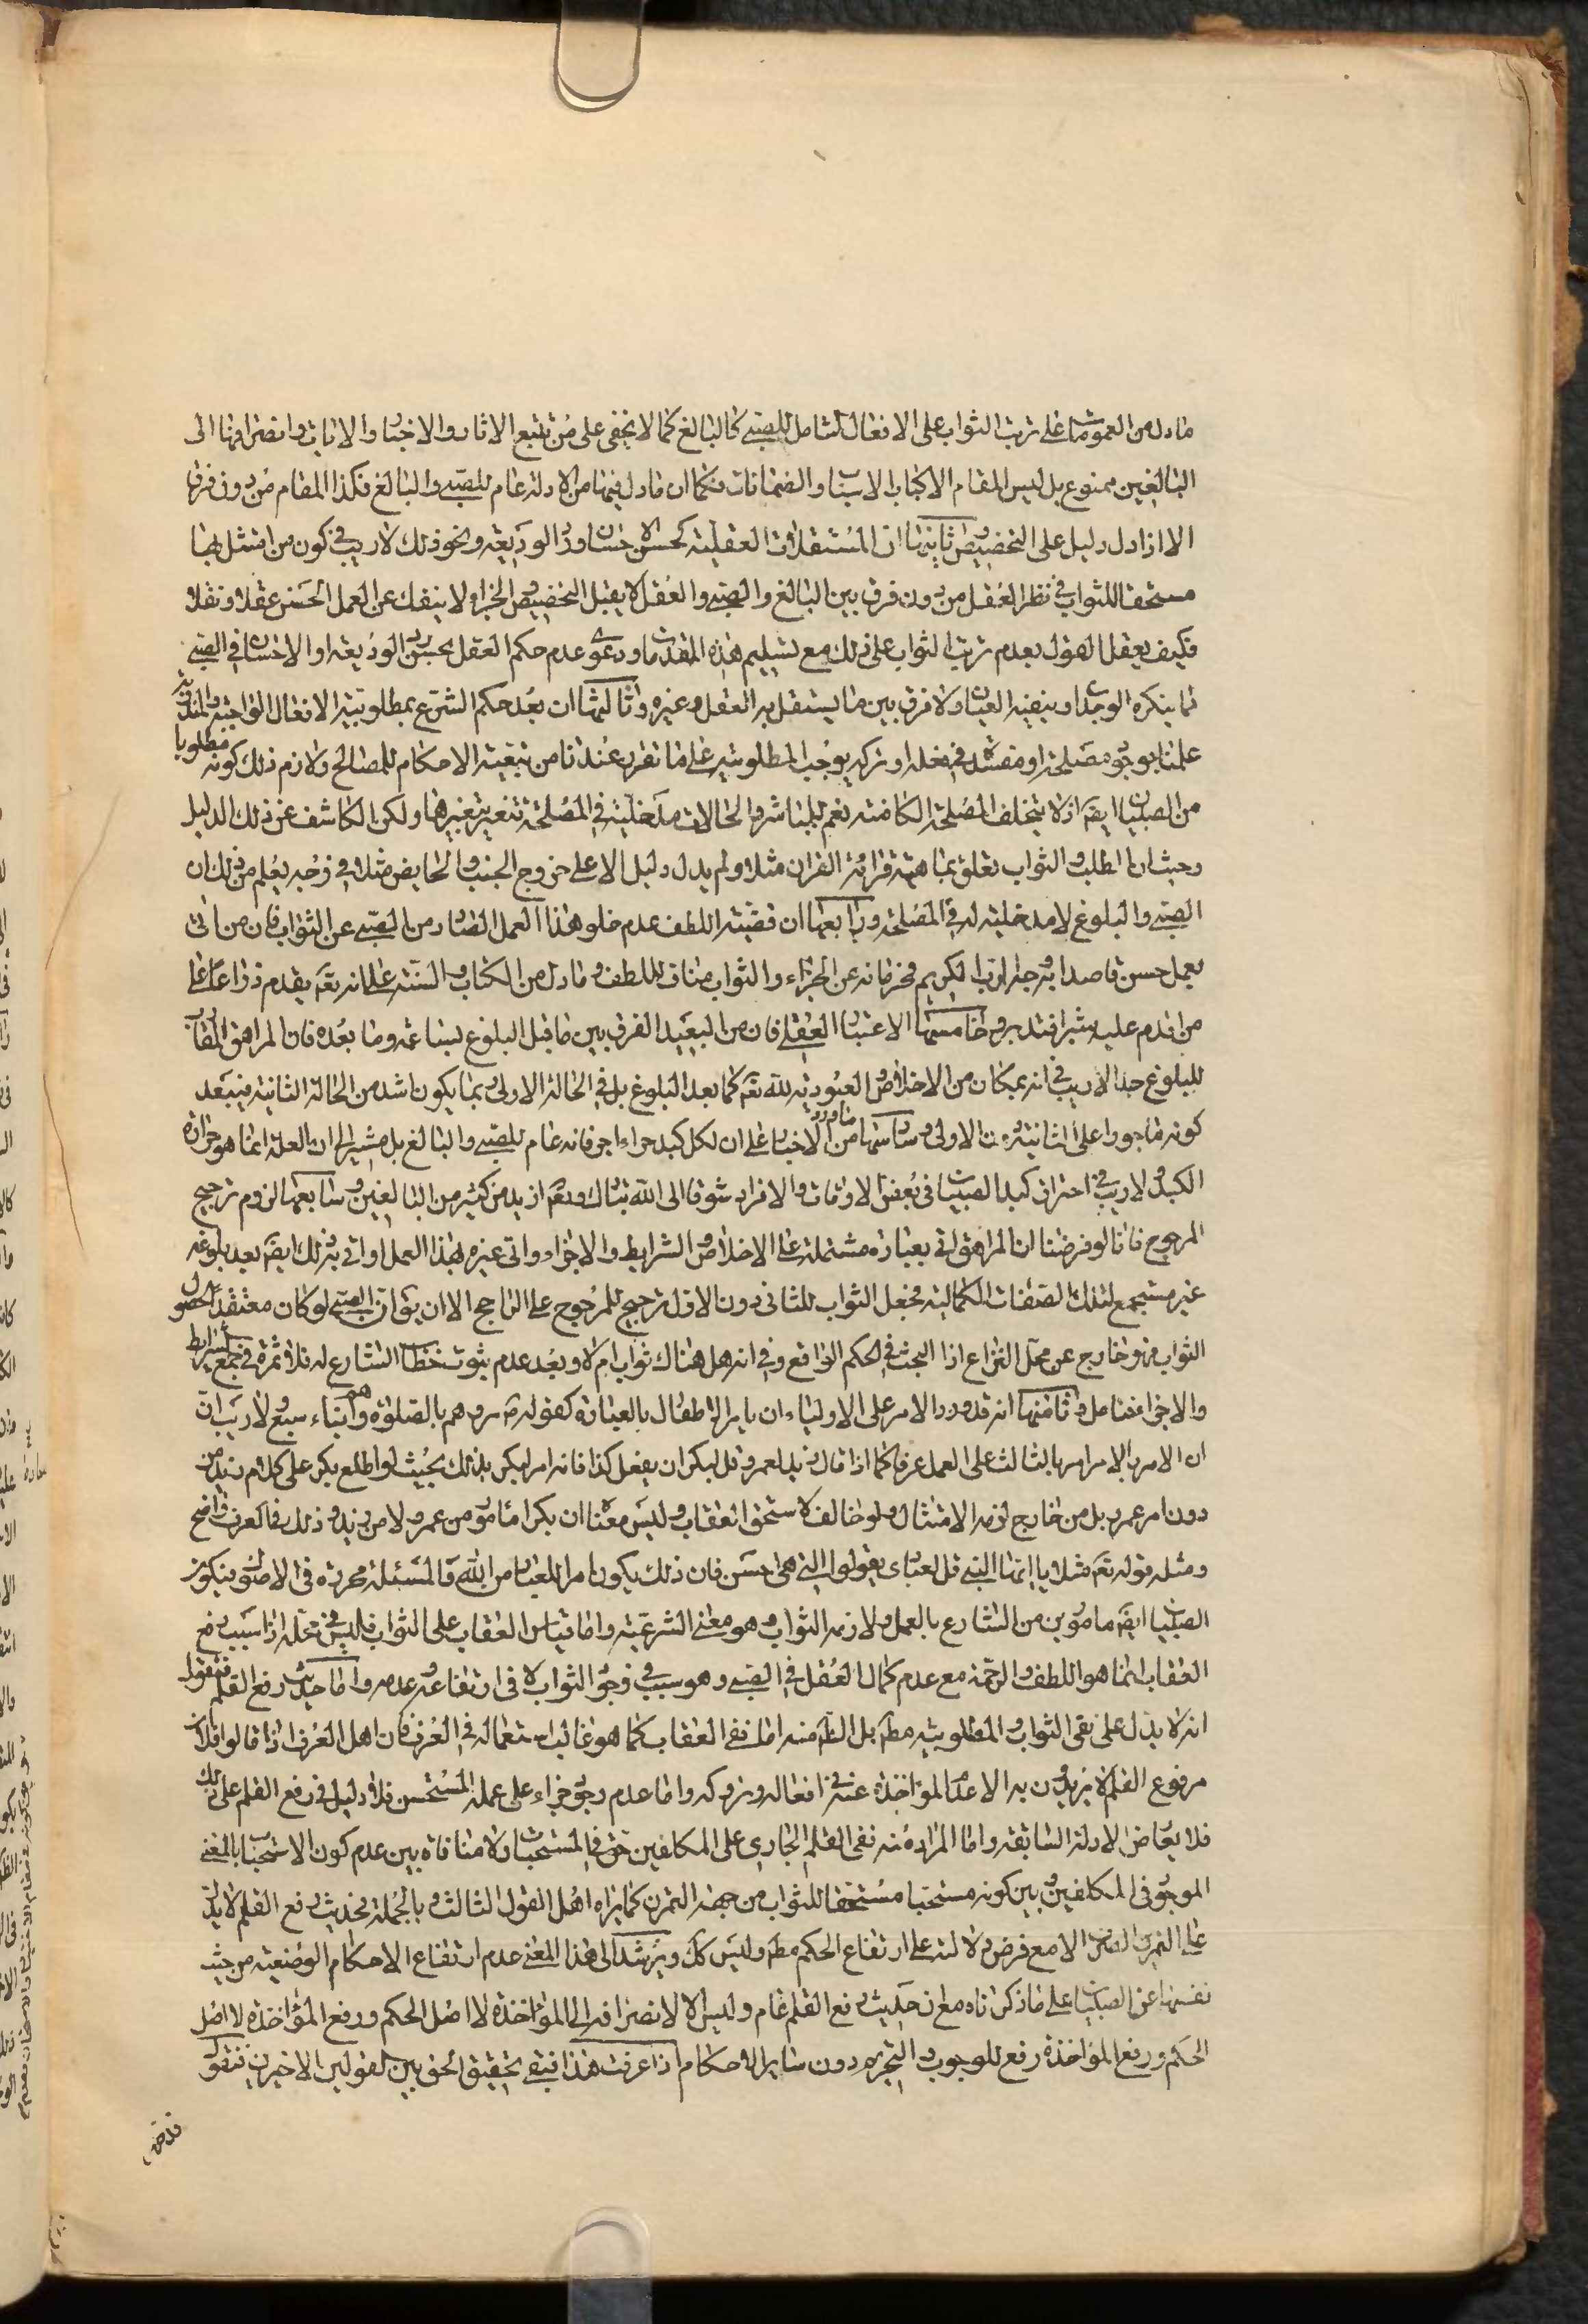 ما دل من العمومات على ترتب الثواب على الافعال الشامل للصبي كالبالغ كما لا يخفى على من تتبع الاثار والاخبار والايات وانصرافها الى
البالغين ممنوع بل ليس المقام الا كباب الاسباب والضمانات فكما ان ما دل فيها من الادلة عام للصبي والبالغ فكذا المقام من دون فرق
الا اذا دل دليل على التخصيص وثانيها ان المستقلات العقلية كحسن الاحسان ورد الوديعة ونحو ذلك لا ريب في كون من امتثل بها
مستحقا للثواب في نظر العقل من دون فرق بين البالغ والصبي والعقل لا يقبل التخصيص والجزاء لا ينفك عن العمل الحسن عقلا ونقلا
فكيف يعقل القول بعدم ترتب الثواب على ذلك مع تسليم هذه المقدمات ودعوى عدم حكم العقل بحسن رد الوديعة او الاحسان في الصبي
مما ينكره الوجدان وينفيه العيان ولا فرق بين ما يستقل به العقل وغيره وثالثها ان بعد حكم الشرع بمطلوبية الافعال الواجبة والمندوبة
علمنا بوجود مصلحة او مفسدة في فعله او تركه يوجب المطلوبية على ما تقرر عندنا من تبعية الاحكام للمصالح ولازم ذلك كونه مطلوبا
من الصبيان ايضا اذ لا يتخلف المصلحة الكامنة نعم للمباشر والحالات مدخلية في المصلحة تتغير بتغيرها ولكن الكاشف عن ذلك الدليل
وحيث ان الطلب والثواب تعلق بماهية قرائة القران مثلا ولم يدل دليل الا على خروج الجنب والحايض مثلا في وجه يعلم من ذلك ان
الصبي والبلوغ لا مدخلية له في المصلحة ورابعها ان قضية اللطف عدم خلو هذا العمل الصادر من الصبي عن الثواب فان من اتى
بعمل حسن قاصدا به وجه الرب الكريم فحرمانه عن الجزاء والثواب مناف للطف وما دل من الكتاب والسنة على انه تعه يقدم ذراعا على
من اقدم عليه شبرا فتدبر وخامسها الاعتبار العقلي فان من البعيد الفرق بين ما قبل البلوغ بساعة وما بعده فان المراهق المقارب
للبلوغ جدا لا ريب في انه بمكان من الاخلاص والعبودية لله تعه كما بعد البلوغ بل في الحالة الاولى ربما يكون اشد من الحالة الثانية فيبعد
كونه ماجورا على الثانية دون الاولى وسادسها ما ورد من الاخبار على ان لكل كبد حراء اجر فانه عام للصبي والبالغ بل مشير الى ان العلة انما هو حرارة
الكبد ولا ريب في احتراق كبد الصبيان في بعض الاوقات والافراد شوقا الى الله تبارك وتعه ازيد من كثير من البالغين وسابعها لزوم ترجيح
المرجوح فانا لو فرضنا ان المراهق اتى بعبادة مشتملة على الاخلاص والشرايط والاجزاء واتى غيره بهذا العمل او اتى به ذلك ايضا بعد بلوغه
غير مستجمع لتلك الصفات الكمالية فجعل الثواب للثاني دون الاول ترجيح للمرجوح على الراجح الا ان يقال ان الصبي لو كان معتقدا لحصول
الثواب فهو خارج عن محل النزاع اذا البحث في الحكم الواقع وفي انه هل هناك ثواب ام لا وبعد عدم ثبوت خطاب الشارع له فلا ثمرة في جمع الشرايط
والاجزاء فتامل وثامنها انه قد ورد الامر على الاولياء ان يامر الاطفال بالعبادة كقوله ع مروهم بالصلوة وهو ابناء سبع لا ريب ان
ان الامر بالامر امر بالثالث على العمل عرفا كما اذا قال زيد لعمرو قل لبكر ان يفعل كذا فانه امر لبكر بذلك بحيث لو اطلع بكر على كلام زيد من
دون امر عمرو بل من خارج لزمه الامتثال ولو خالف لاستحق العقاب وليس معناه ان بكرا مامور من عمرو لا من زيد وذلك في العرف واضح
ومثله قوله تعه مثلا يا ايها النبي قل لعبادي يقولوا التي هي احسن فان ذلك يكون امرا للعباد من الله والمسئلة محررة في الاصول فيكون
الصبيان ايضا مامورين من الشارع بالعمل ولازمه الثواب وهو معنى الشرعية واما قياس العقاب على الثواب فليس في محله اذ سبب رفع
العقاب انما هو اللطف والرحمة مع عدم كمال العقل في الصبي وهو سبب في وجود الثواب لا في ارتفاعه وعدمه واما حديث رفع القلم فنقول
انه لا يدل على نفى الثواب والمطلوبية مطه بل الظه منه اما نفي العقاب كما هو غالب استعماله في العرف فان اهل العرف اذا قالوا فلان
مرفوع القلم لا يريدون به الا عدم المؤاخذة عنه في افعاله وتروكه واما عدم وجود جزاء على عمله المستحسن فلا دليل في رفع القلم على ذلك
فلا يعارض الادلة السابقة واما المراد منه نفى القلم الجاري على المكلفين حتى في المستحبات ولا منافاة بين عدم كون الاستحباب بالمعنى
الموجود في المكلفين وبين كونه مستحبا مستحقا للثواب من جهة التمرن كما يراه اهل القول الثالث وبالجملة فحديث رفع القلم لا يدل
على التمرين الصرف الا مع فرض دلالته على ارتفاع الحكم مطه وليس كك ويرشد الى هذا المعنى عدم ارتفاع الاحكام الوضعية من حيث
نفسها عن الصبيان على ما ذكرناه مع ان حديث رفع القلم عام وليس الا لانصرافه الى المؤاخذة لا اصل الحكم ورفع المؤاخذة لا اصل
الحكم ورفع المؤاخذة رفع للوجوب والتحريم دون ساير الاحكام اذا عرفت هذا فبقى تحقيق الحق بين القولين الاخيرين فنقول